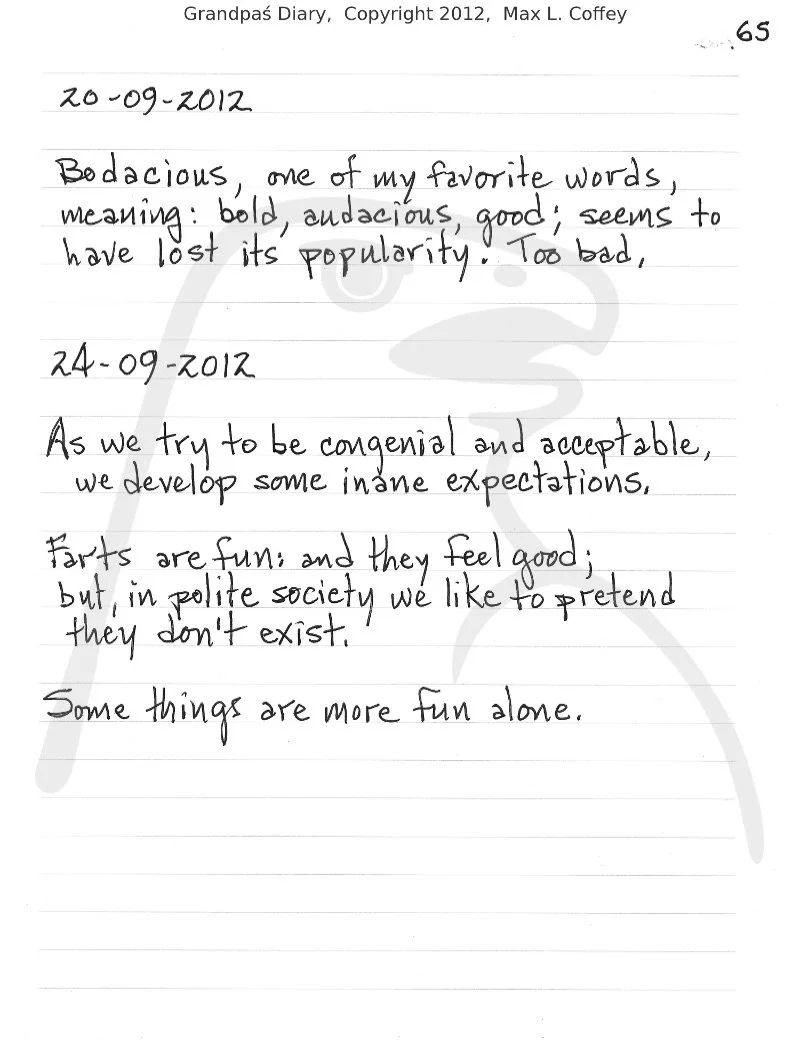 Grandpaś Diary, Copyright 2012, Max L. Coffey
65
20-09-2012
Bodacious, one of my favorite words,
meaning: bold, audacious, good; seems to
have lost its popularity. Too bad,
24-09-2012
As we try to be congenial and acceptable,
we develop some inane expectations.
Farts are fun; and they feel good;
but, in polite society we like to pretend
they don't exist.
Some things are more fun alone.